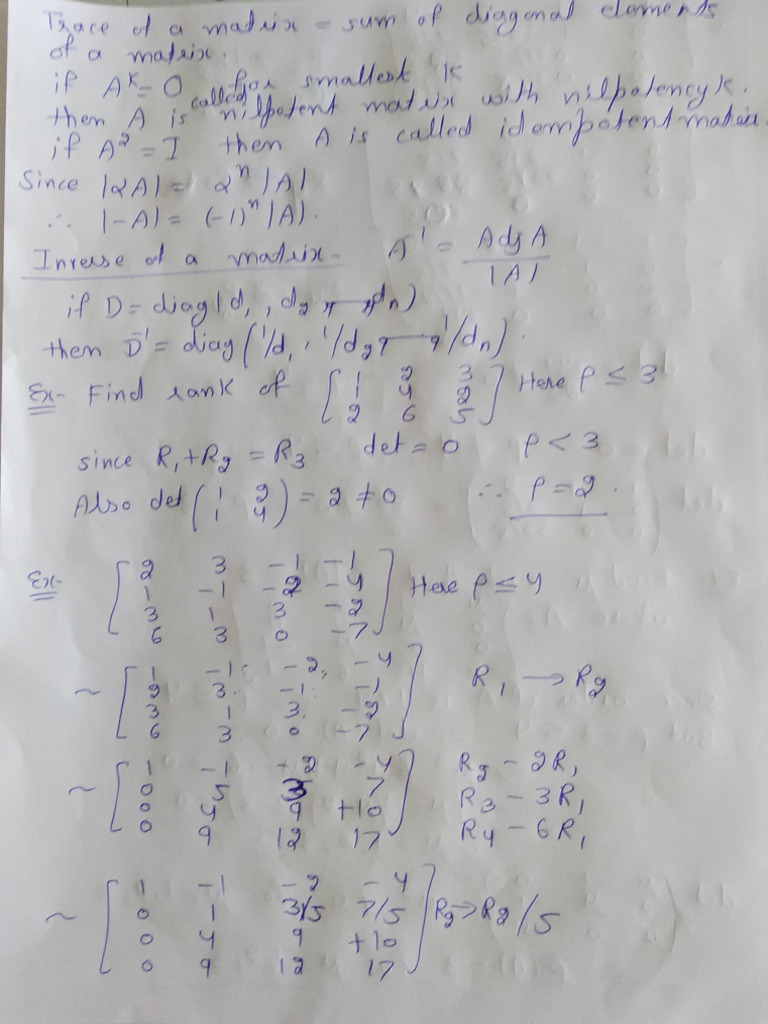 Trace of a matrix = sum of diagonal elements
of a matrix.
if A^K = 0 for smallest K
then A is called nilpotent matrix with nilpotency k.
if A² = I then A is called idempotent matrix.
Since |2A| = 2^n |A|
∴ |-A| = (-1)^n |A|.
Inverse of a matrix- A⁻¹ = Adj A / |A|
if D = diag(d₁, d₂, — dn)
then D⁻¹ = diag(1/d₁, 1/d₂, — 1/dn).
Ex- Find rank of [ 1 2 3 ] Here ρ ≤ 3
1 4 2
2 6 5
since R₁+R₂ = R₃ det = 0 ρ < 3
Also det ( 1 2 ) = 2 ≠ 0 ∴ ρ = 2.
1 4
Ex- [ 2 3 -1 -1 ] Here ρ ≤ 4
1 -1 -2 -4
3 1 3 -2
6 3 0 -7
~ [ 1 -1 -2 -4 ] R₁ → R₂
2 3 -1 -1
3 1 3 -2
6 3 0 -7
~ [ 1 -1 -2 -4 ] R₂ - 2R₁
0 5 3 7 R₃ - 3R₁
0 4 9 +10 R₄ - 6R₁
0 9 12 17
~ [ 1 -1 -2 -4 ] R₂→R₂/5
0 1 3/5 7/5
0 4 9 +10
0 9 12 17